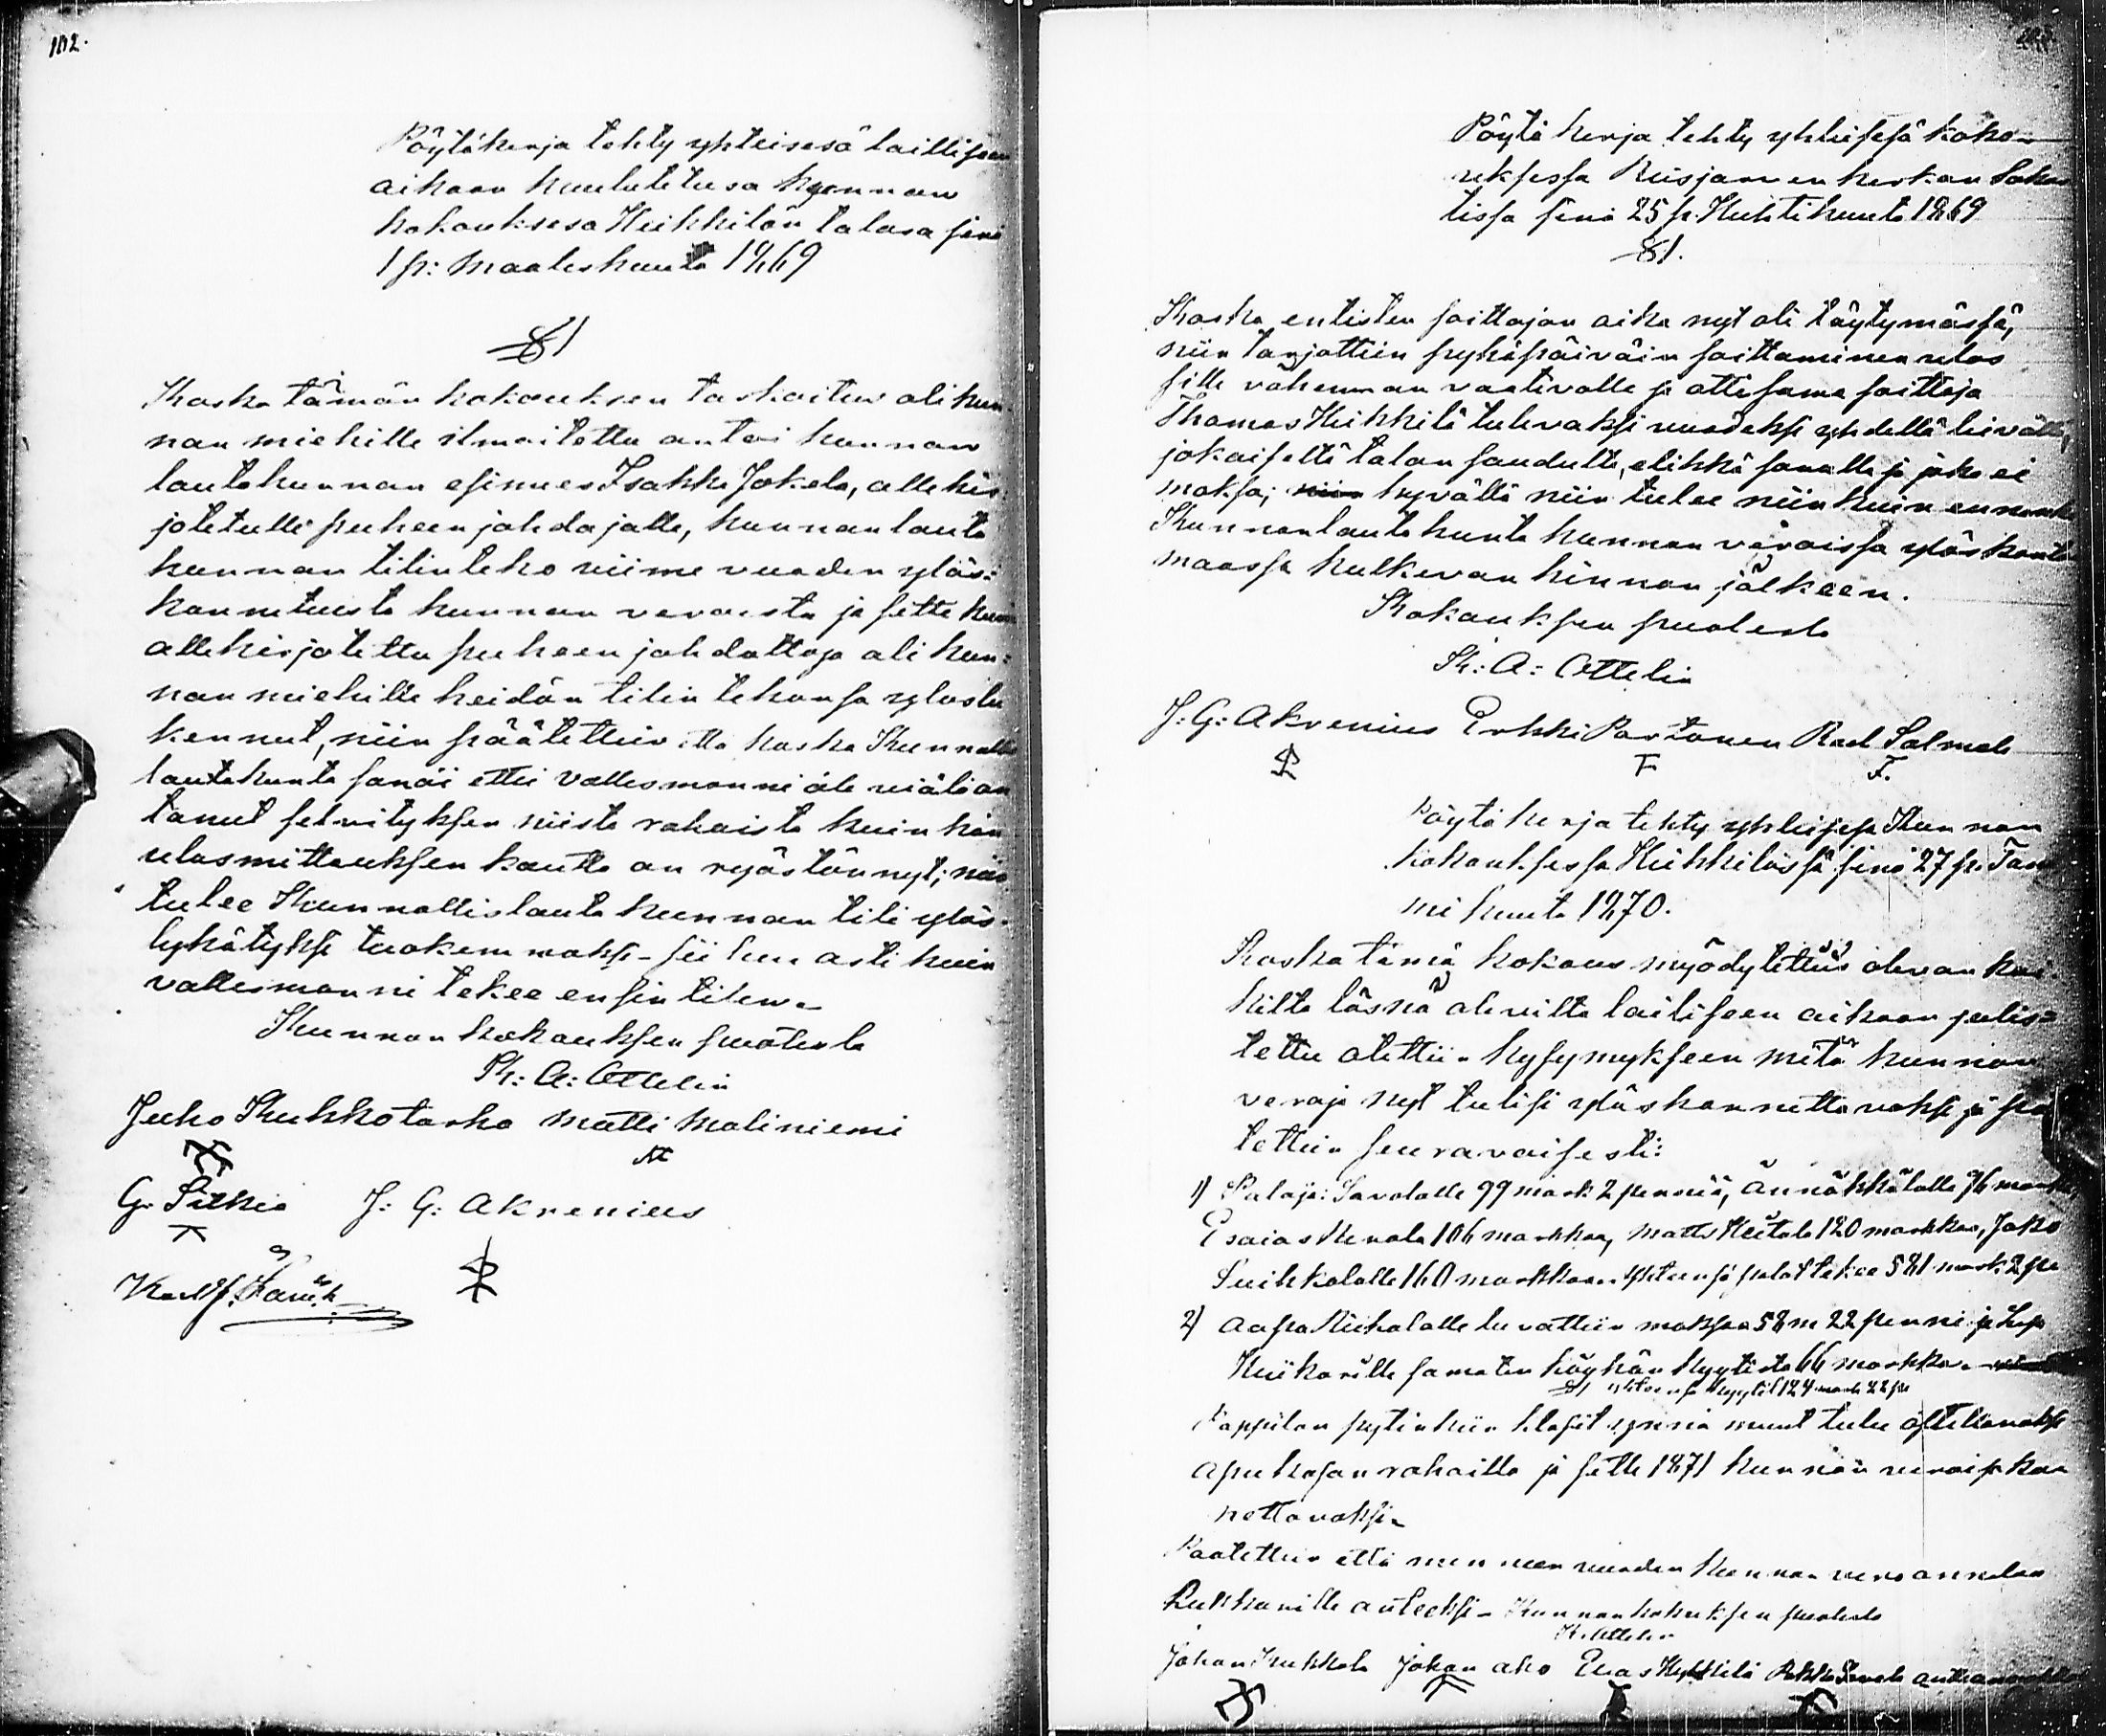 102.
Pöytäkerja tehty yhteisesä laillisen
aikaan kuulutetusa kunnan
kokouksesa Heikkilän talosa sinä
1 p: Maaliskuuta 1869
§1
Koska tämän kokouksen tarkoitus oli kun-
nan miehille ilmoitettu antoi kunnan
lautakunnan esimies Isakki Jokela, allekir-
jotetulle puheenjohdajalle, kunnan lauta
kunnan tilinteko viime vuoden ylös-
kannetuista kunnan veroista ja sitte kuin
allekirjotettu puheenjohdattaja oli kun=
nan miehille heidän tilin tekonsa ylöslu
kennut, niin päätettiin että koska Kunnallis
lautakunta sanoi ettei Vallesmanni ole vielä an
tanut selvityksen niistä rahoista kuin hän
ulosmittauksen kautta on ryöstönnyt; niin
tulee Kunnallislauta kunnan tili ylös-
lykätyksi tuokemmaksi - sii hen asti kuin
vallesmanni tekee ensin tilin -
Kunnan kokouksen puolesta
K: A: Ottelin
Juho Kukkotarho Matti Maliniemi
G. Pitkä J: G: Akrenius
Pöytä kerja tehty yhteisesä koko-
uksessa Reisjärven kirkon Sakas
tissa sinä 25 p. Huhtikuuta 1869
§1.
Koska entisten soittajan aika nyt oli täytymässä,
niin tarjottiin pyhäpäiväin soittaminen ulos
sille vähemmän vaativalle ja otti sama soittaja
Thomas Heikkilä tulevaksi vuodeksi yhdellä leivällä,
jokaiselta talon savulta, elikkä sanalla ja joka ei
maksa; niin hyvällä niin tulee niin kuin ennenki
Kunnanlautakunta kunnan veroissa ylös kantaa
maassa kulkevan hinnan jälkeen.
Kokouksen puolesta
K: A: Ottelin
J: G: Akrenius Erkki Partanen Kael Salmela
Pöytä kerja tehty yhteisesä Kunnan
kokouksessa Heikkilässä sinä 27 p. Tam
mi kuuta 1870.
Koska tämä kokous myödytettiin olevan kai
kilta läsnä olevilta lailiseen aikaan julis=
tettu otettiin kysymykseen mitä kunnan
veroja nyt tulisi ylöskannettavaksi ja pää
tettiin seuravaisesti:
1) Savolalle 99 mark 2 penniä, Ännäkkälälle 96 markkaa,
Esaias Kenola 106 markkaa, Matts Keitala 120 markkaa, Jako
Puihkolalle 160 markkaa. Yhteensä palat tekee 581 mark 2 pe
2) Aapo Niekalalle luvattiin maksaa 58 m 22 penni ja Lupo
Kiikarille samaten köyhän kyytistä 66 markkaa.
yhteensä kyytit 124 mark 22 pe
Pappilan pytinkiin klasit ynnä muut tulee otettavaksi
apukasan rahoilla ja sitte 1871 kunnan veroissa kan
nettavaksi.
Päätettiin että mennen vuoden kunnan vero annetaan
Lukkarille auteeksi - Kunnan kokouksen puolesta
K. Ottelin
Johan Kukkola Johan Aho Elias Kyllilä